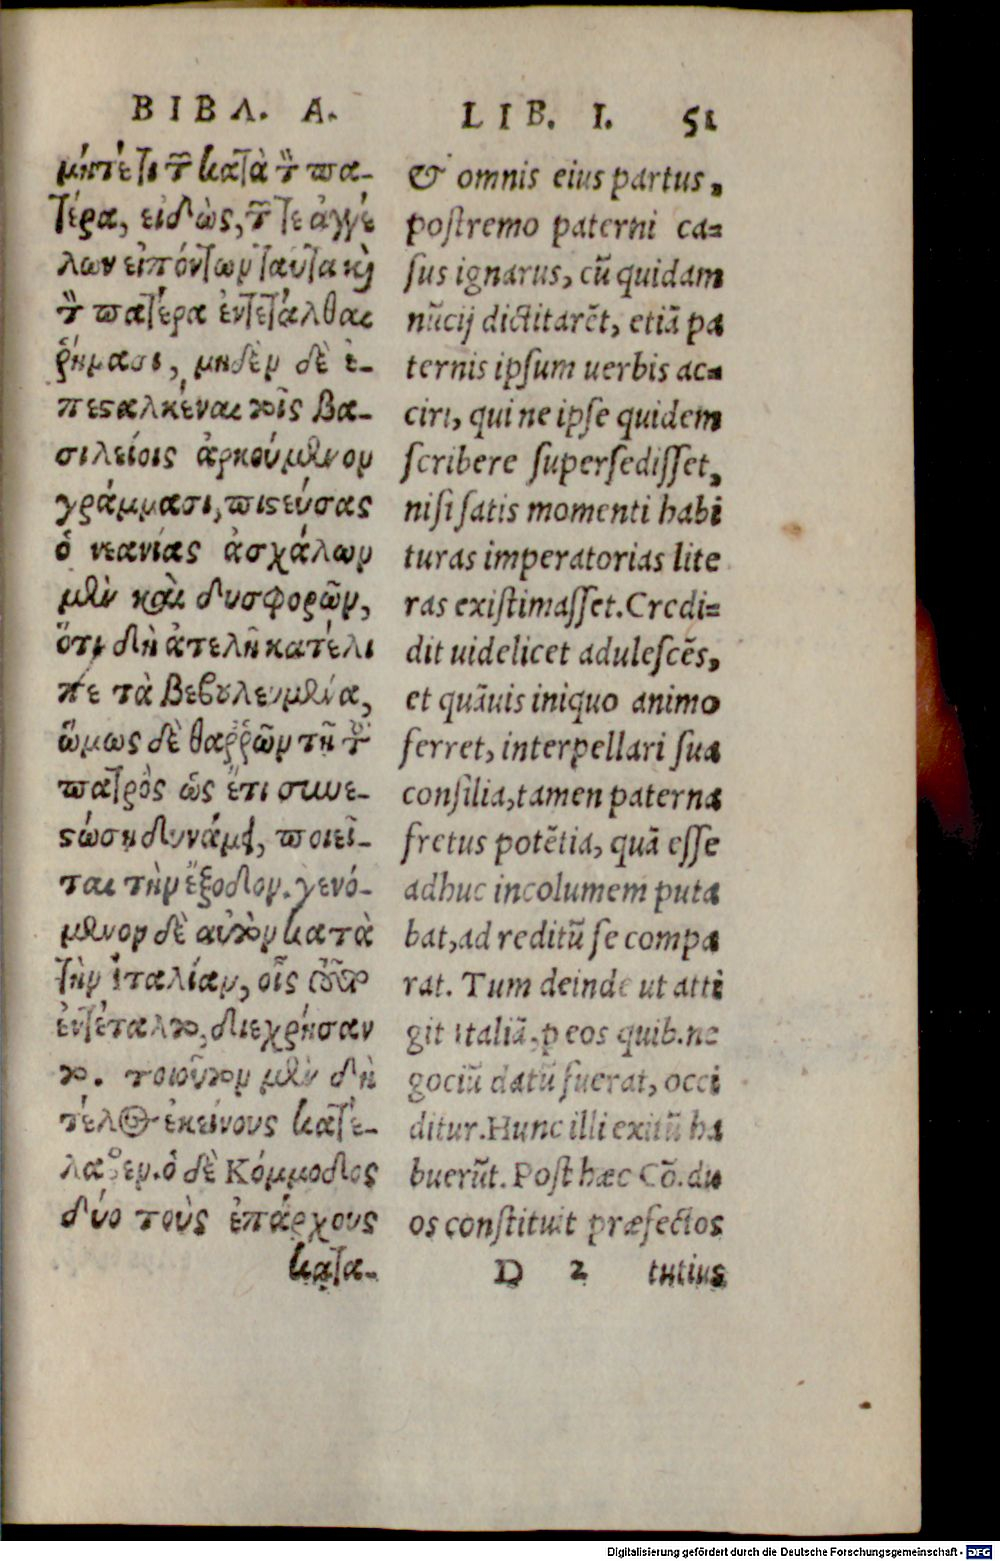 ΒΙΒΛ. Α.
μήτέ τι τ̃ κατὰ τ̀ πα-
τέρα, εἰδὼς, τ̃ τε ἀγγέ
λων εἰπόντων ταῦτα κὶ
τ̀ πατέρα ἐντετάλθαι
ῥήμασι, μηδὲν δὲ ἐ-
πεσταλκέναι τοῖς βα-
σιλείοις ἀρκούμενον
γράμμασι, πιστεύσας
ὁ νεανίας ἀσχάλων
μὲν καὶ δυσφορῶν,
ὅτι δὴ ἀτελῆ κατέλι
πε τὰ βεβουλευμένα,
ὅμως δὲ θαῤῥῶν τῇ τοῦ
πατρὸς ὡς ἔτι συνε-
στώσῃ δυνάμει, ποιεῖ-
ται τὴν ἔξοδον. γενό-
μενον δὲ αὐτὸν κατὰ
τὴν ἰταλίαν, οἷς τοῦτο
ἐντέταλτο, διεχρήσαν
το. τοιοῦτον μὲν δὴ
τέλος ἐκείνους κατέ-
λαβεν. ὁ δὲ Κόμμοδος
δύο τοὺς ἐπάρχους
κατα-
LIB. I. 51
& omnis eius partus,
postremo paterni ca=
sus ignarus, cū quidam
nūcij dictitarēt, etiā pa
ternis ipsum uerbis ac=
ciri, qui ne ipse quidem
scribere supersedisset,
nisi satis momenti habi
turas imperatorias lite
ras existimasset. Credi=
dit uidelicet adulescēs,
et quāuis iniquo animo
ferret, interpellari sua
consilia, tamen paterna
fretus potētia, quā esse
adhuc incolumem puta
bat, ad reditū se compa
rat. Tum deinde ut atti
git Italiā, p eos quib. ne
gociū datū fuerat, occi
ditur. Hunc illi exitū ha
buerūt. Post hæc Cō. du
os constituit præfectos
D 2 tutius
Digitalisierung gefördert durch die Deutsche Forschungsgemeinschaft - DFG